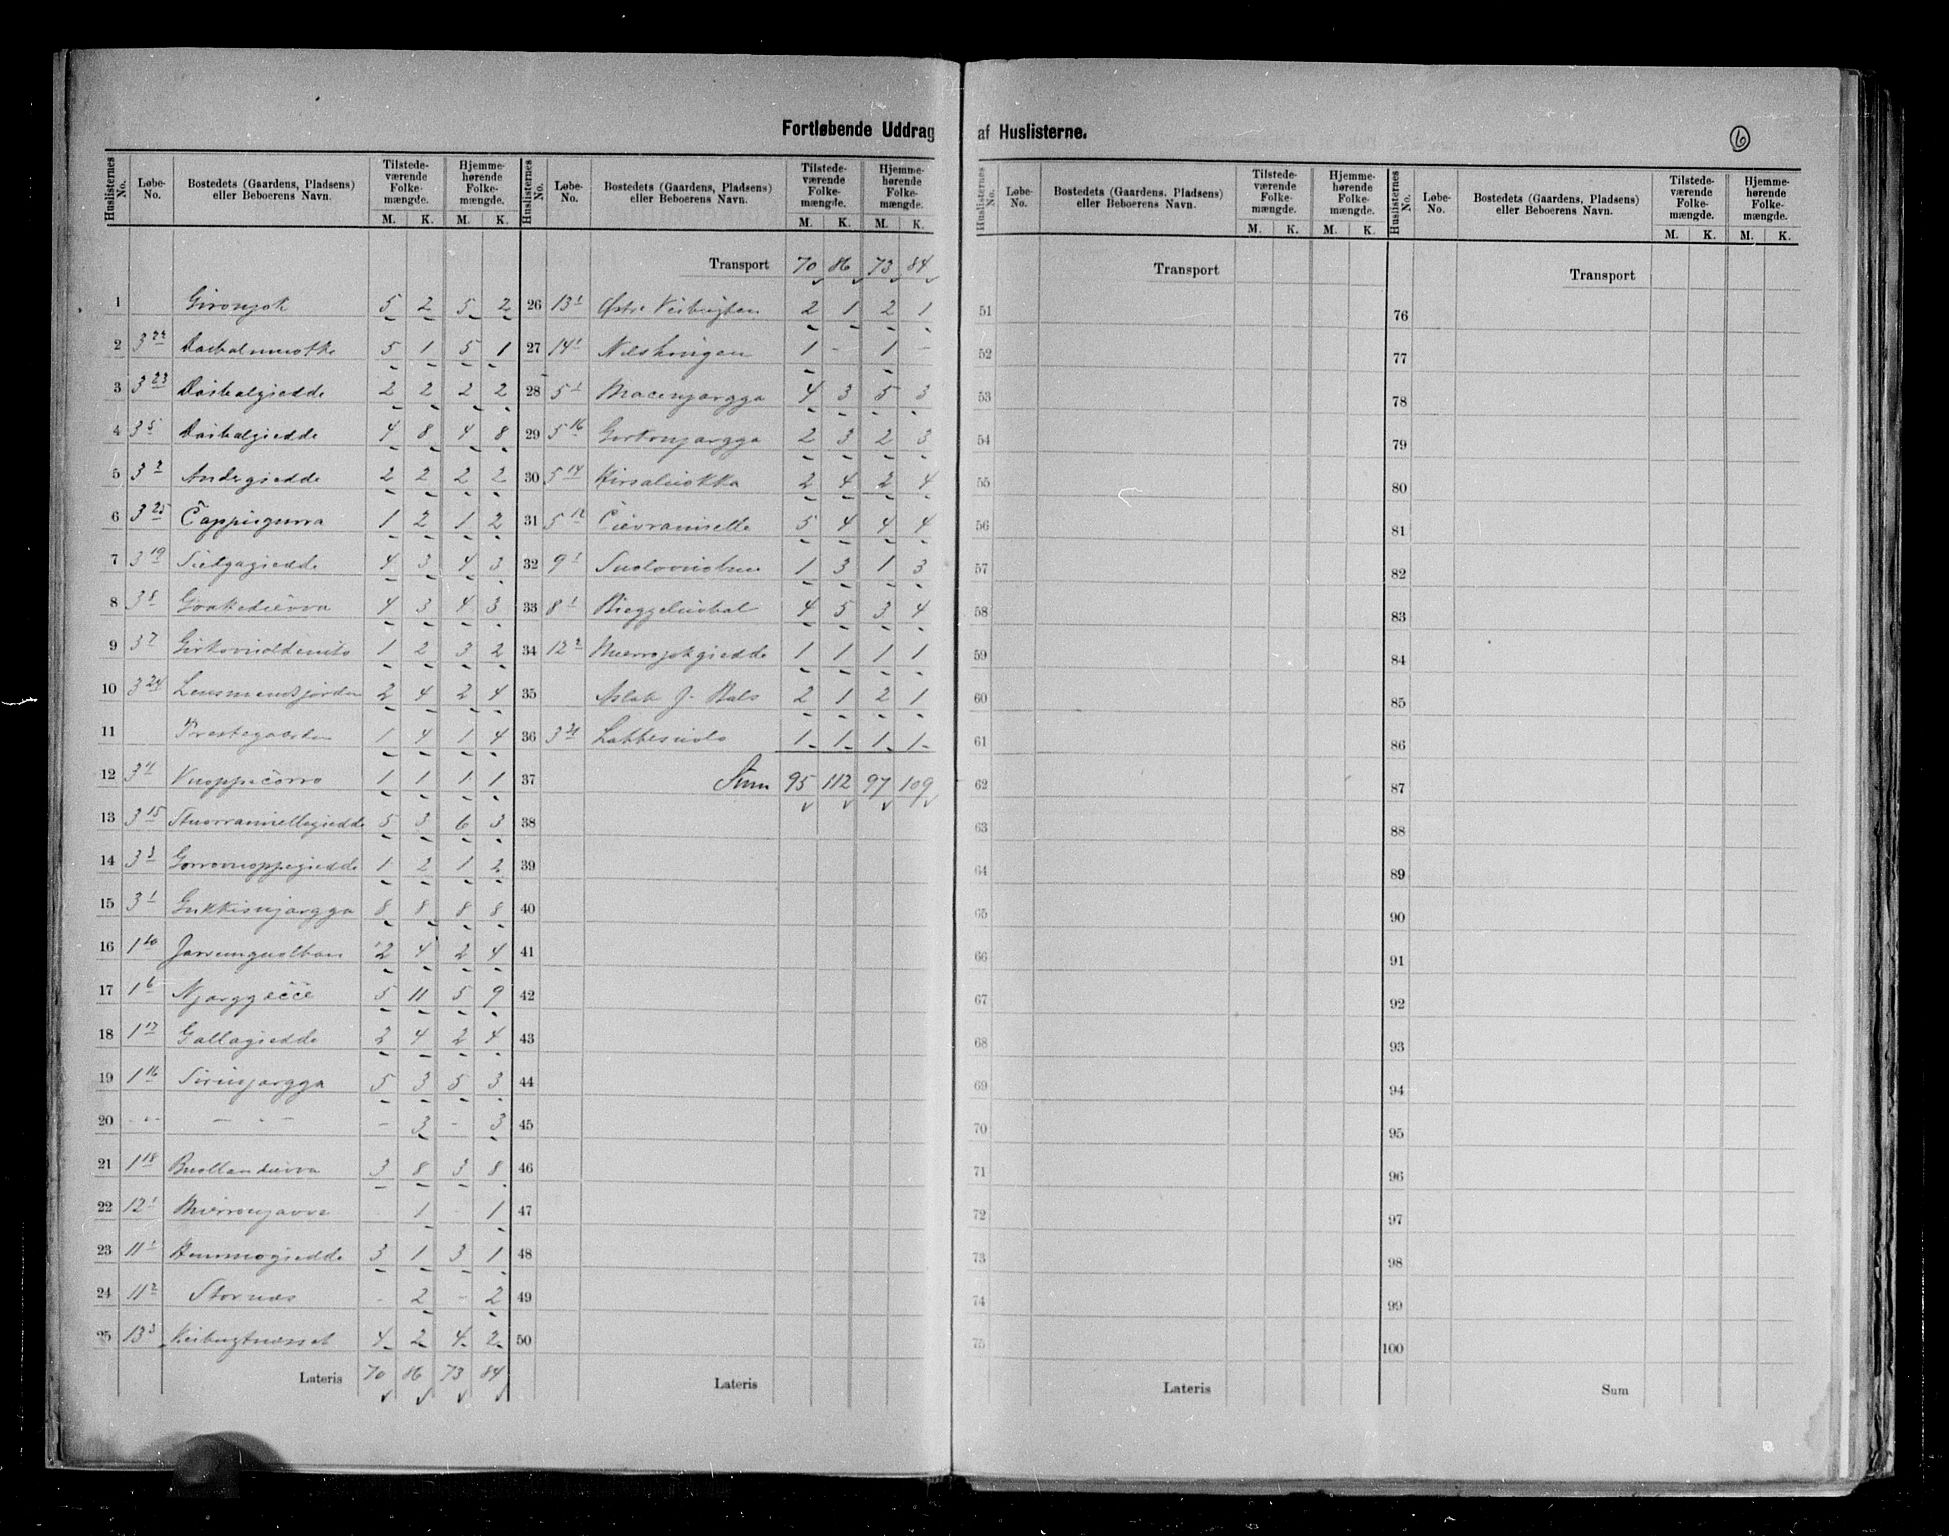 Fortløbende Uddrag af Huslisterne.
6
Huslisternes No. Løbe-No. Bostedets (Gaardens, Pladsens) eller Beboerens Navn. Tilstedeværende Folkemængde. M. K. Hjemmehørende Folkemængde. M. K.
1 5 2 5 2
2 3 22 5 1 5 1
3 3 23 Daibalgiedde 2 2 2 2
4 3 5 Daibalgiedde 4 8 4 8
5 3 2 Andergiedde 2 2 2 2
6 3 25 Čappisgurra 1 2 1 2
7 3 19 Sielgagiedde 4 3 4 3
8 3 8 Goakedievva 4 3 4 3
9 3 7 1 2 3 2
10 3 24 Lensmandsjorden 2 4 2 4
11 Prestegaarden 1 4 1 4
12 3 4 Vuoppečorro 1 1 1 1
13 3 15 Stuorraniellegiedde 5 3 6 3
14 3 3 Gorrovuoppegiedde 1 2 1 2
15 3 1 Gukkisnjargga 8 8 8 8
16 1 20 2 4 2 4
17 1 6 Njarggečče 5 11 5 9
18 1 17 Gallagiedde 2 4 2 4
19 1 16 Sirinjargga 5 3 5 3
20 - - - - - - 3 - 3
21 1 18 Buollandievva 3 8 3 8
22 12 1 Mierronjavve - 1 - 1
23 11 1 Hemmogiedde 3 1 3 1
24 11 2 Stornæs - 2 - 2
25 13 3 Veibugtnesset 4 2 4 2
Lateris 70 86 73 84
Huslisternes No. Løbe-No. Bostedets (Gaardens, Pladsens) eller Beboerens Navn. Tilstedeværende Folkemængde. M. K. Hjemmehørende Folkemængde. M. K.
Transport 70 86 73 84
26 13 1 Østre Veibugten 2 1 2 1
27 14 1 1 - 1 -
28 5 1 Macenjargga 4 3 5 3
29 5 16 Girkonjargga 2 3 2 3
30 5 14 Kirsaluokka 2 4 2 4
31 5 12 Čievranielle 5 4 4 4
32 9 1 1 3 1 3
33 8 1 Bieggeluobal 4 5 3 4
34 12 2 Mierrojokgiedde 1 1 1 1
35 Aslak J. Bals 2 1 2 1
36 3 21 1 1 1 1
37 Sum 95 112 97 109
38
39
40
41
42
43
44
45
46
47
48
49
50
Lateris
Huslisternes No. Løbe-No. Bostedets (Gaardens, Pladsens) eller Beboerens Navn. Tilstedeværende Folkemængde. M. K. Hjemmehørende Folkemængde. M. K.
Transport
51
52
53
54
55
56
57
58
59
60
61
62
63
64
65
66
67
68
69
70
71
72
73
74
75
Lateris
Huslisternes No. Løbe-No. Bostedets (Gaardens, Pladsens) eller Beboerens Navn. Tilstedeværende Folkemængde. M. K. Hjemmehørende Folkemængde. M. K.
Transport
76
77
78
79
80
81
82
83
84
85
86
87
88
89
90
91
92
93
94
95
96
97
98
99
100
Sum